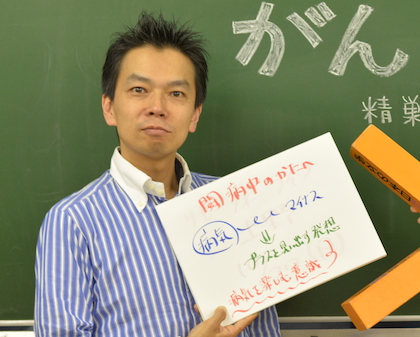 がん
精巣
闘病中のかたへ
病気 マイナス
⇓
プラスと見出す発想
病気を楽しむ意識